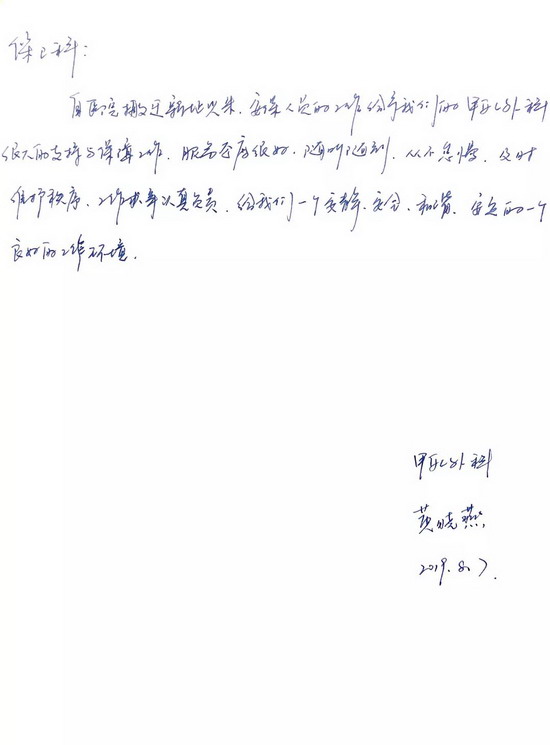 保卫科：
自医院搬迁新址以来，安保人员的工作给予我们的甲乳外科
很大的支持与保障工作，服务态度很好，随叫随到，从不怠慢，及时
维护秩序，工作执事认真负责，给我们一个安静、安全、和谐、安定的一个
良好的工作环境。
甲乳外科
黄晓燕
2019.8.7.